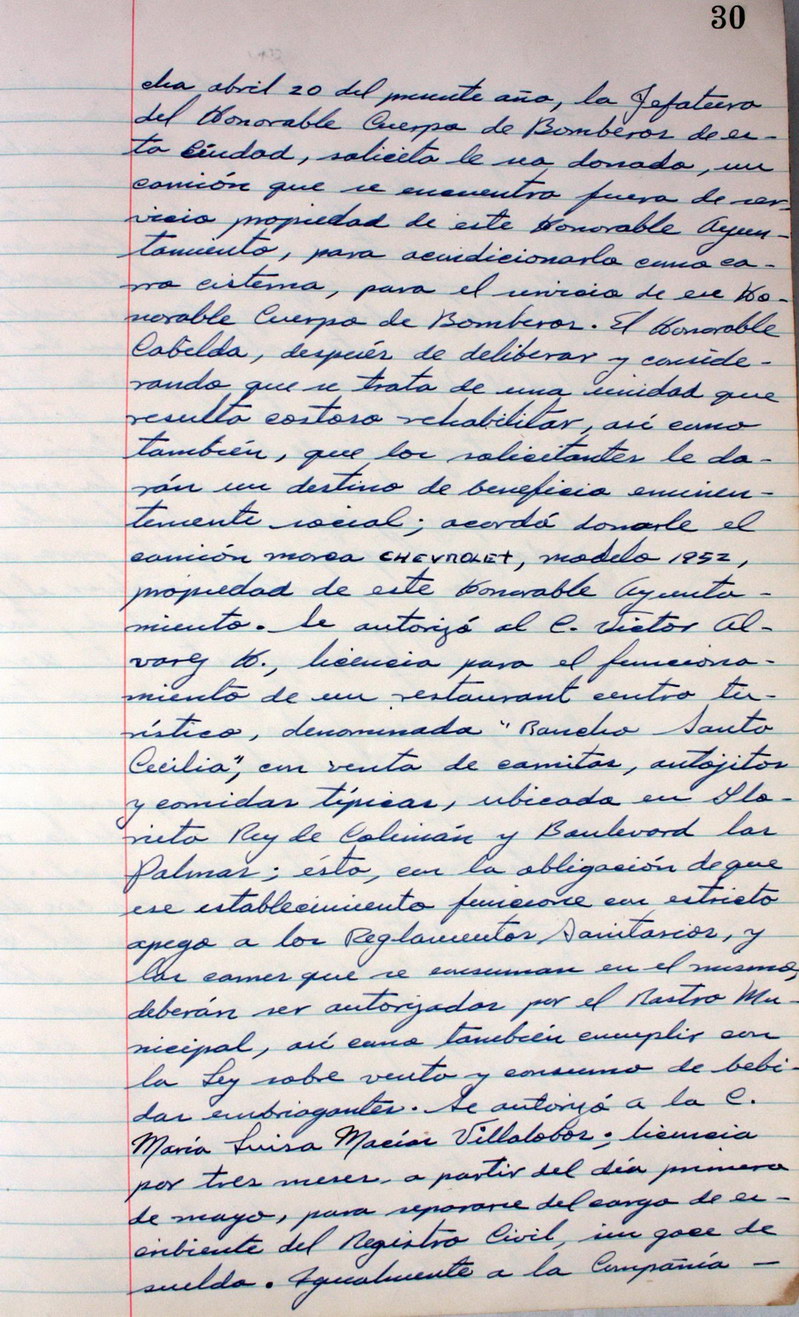 30
cha abril 20 del presente año, la Jefatura
del Honorable Cuerpo de Bomberos de es-
ta Ciudad, solicita le sea donado, un
camión que se encuentra fuera de ser-
vicio propiedad de este Honorable Ayun-
tamiento, para acondicionarlo como ca-
rro cisterna, para el servicio de ese Ho-
norable Cuerpo de Bomberos. El Honorable
Cabildo, después de deliberar y conside-
rando que se trata de una unidad que
resulta costoso rehabilitar, así como
también, que los solicitantes le da-
rán un destino de beneficio eminen-
temente social; acordó donarle el
camión marca CHEVROLET, modelo 1952,
propiedad de este Honorable Ayunta-
miento. Se autorizó al C. Victor Al-
varez H., licencia para el funciona-
miento de un restaurant centro tu-
rístico, denominado "Rancho Santa
Cecilia", con venta de carnitas, antojitos
y comidas típicas, ubicado en Glo-
rieta Rey de Colimán y Boulevard las
Palmas; ésto, con la obligación de que
ese establecimiento funcione con estricto
apego a los Reglamentos Sanitarios, y
las carnes que se consuman en el mismo,
deberán ser autorizadas por el Rastro Mu-
nicipal, así como también cumplir con
la Ley sobre venta y consumo de bebi-
das embriagantes. Se autorizó a la C.
María Luisa Macías Villalobos; licencia
por tres meses, a partir del día primero
de mayo, para separarse del cargo de es-
cribiente del Registro Civil, sin goce de
sueldo. Igualmente a la Compañía -